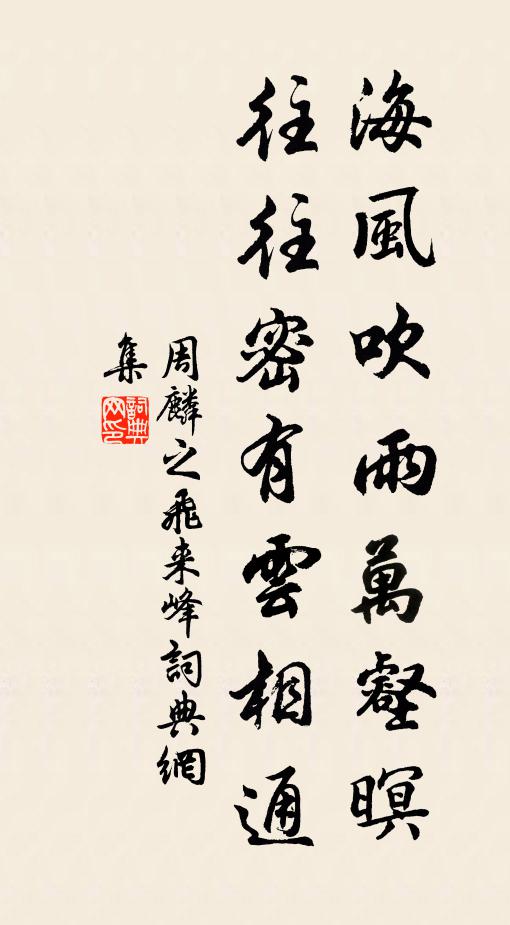 海風吹雨萬壑暝
往往密有雲相通
周麟之飛来峰詞典網
集
詞典網印